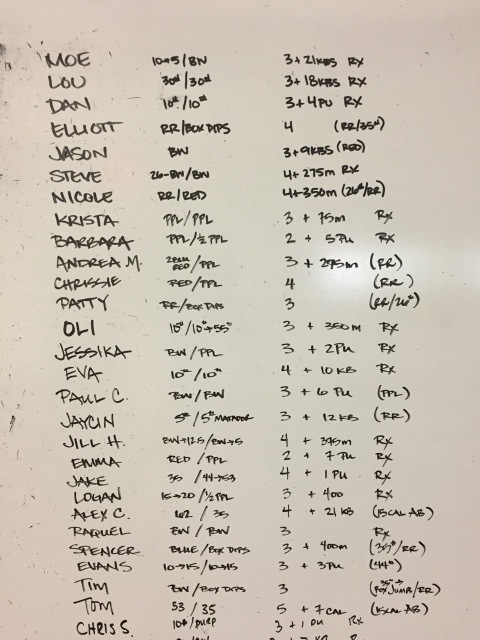 MOE 10→5/BW 3+21KBS RX
LOU 30#/30# 3+18KBS RX
DAN 10#/10# 3+4PU RX
ELLIOTT RR/BOX DIPS 4 (RR/35#)
JASON BW 3+9KBS (RED)
STEVE 26-BW/BW 4+275m RX
NICOLE RR/RED 4+350m (26#/RR)
KRISTA PPL/PPL 3 + 75m Rx
BARBARA PPL/½ PPL 2 + 5PU Rx
ANDREA M. RED/PPL 3 + 275m (RR)
CHRISSIE RED/PPL 4 (RR)
PATTY RR/BOX DIPS 3 (RR/26#)
OLI 10#/10#→55# 3 + 350m Rx
JESSIKA BW/PPL 3 + 2PU Rx
EVA 10#/10# 4 + 10 KB Rx
PAUL C. BW/BW 3 + 6 PU (PPL)
JAYCIN 5#/5# MATADOR 3 + 12KB (RR)
JILL H. BW→12.5/BW→5 4 + 375m Rx
EMMA RED/PPL 2 + 7 PU Rx
JAKE 35/44→53 4 + 1 PU Rx
LOGAN 15→20/½PPL 3 + 400 Rx
ALEX C. 62/35 4 + 21 KB (15CAL AB)
RAQUEL BW/BW 3 Rx
SPENCER BLUE/BOX DIPS 3 + 400m (35#/RR)
EVANS 10→15/10→15 3 + 3PU (44#)
TIM BW/BOX DIPS 3 (35#→ JUMP/RR)
TOM 53/35 5 + 7CAL (15CAL AB)
CHRIS S. 10#/PURP 3 + 1 PU Rx